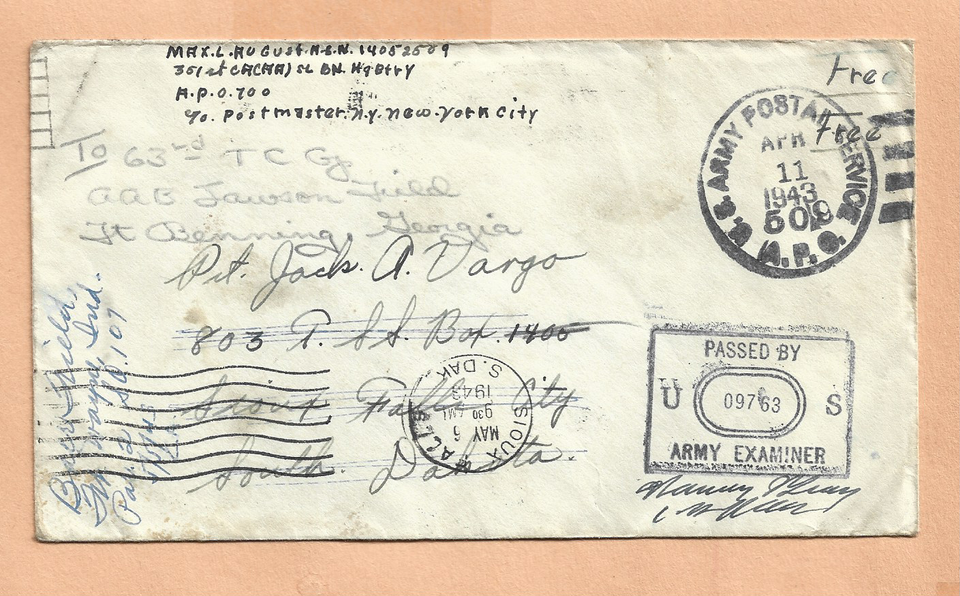 Max.L.August.A.S.N. 14052509
351st CA(AA) SL BN. HqBtry
A.P.O.700
℅. Postmaster.N.Y. New.York City
Free
Free
U.S. ARMY POSTAL SERVICE
APR
11
1943
509
A.P.O.
To 63rd T C Gp
AAB Lawson Field
Ft Benning, Georgia
Pvt. Jack. A. Vargo
803 T. S.S. Box. 1400
Sioux Falls City
South Dakota.
SIOUX FALLS
S. DAK
MAY 6
930 AM
1943
PASSED BY
U 09763 S
ARMY EXAMINER
Baer Field,
Ft. Wayne Ind.